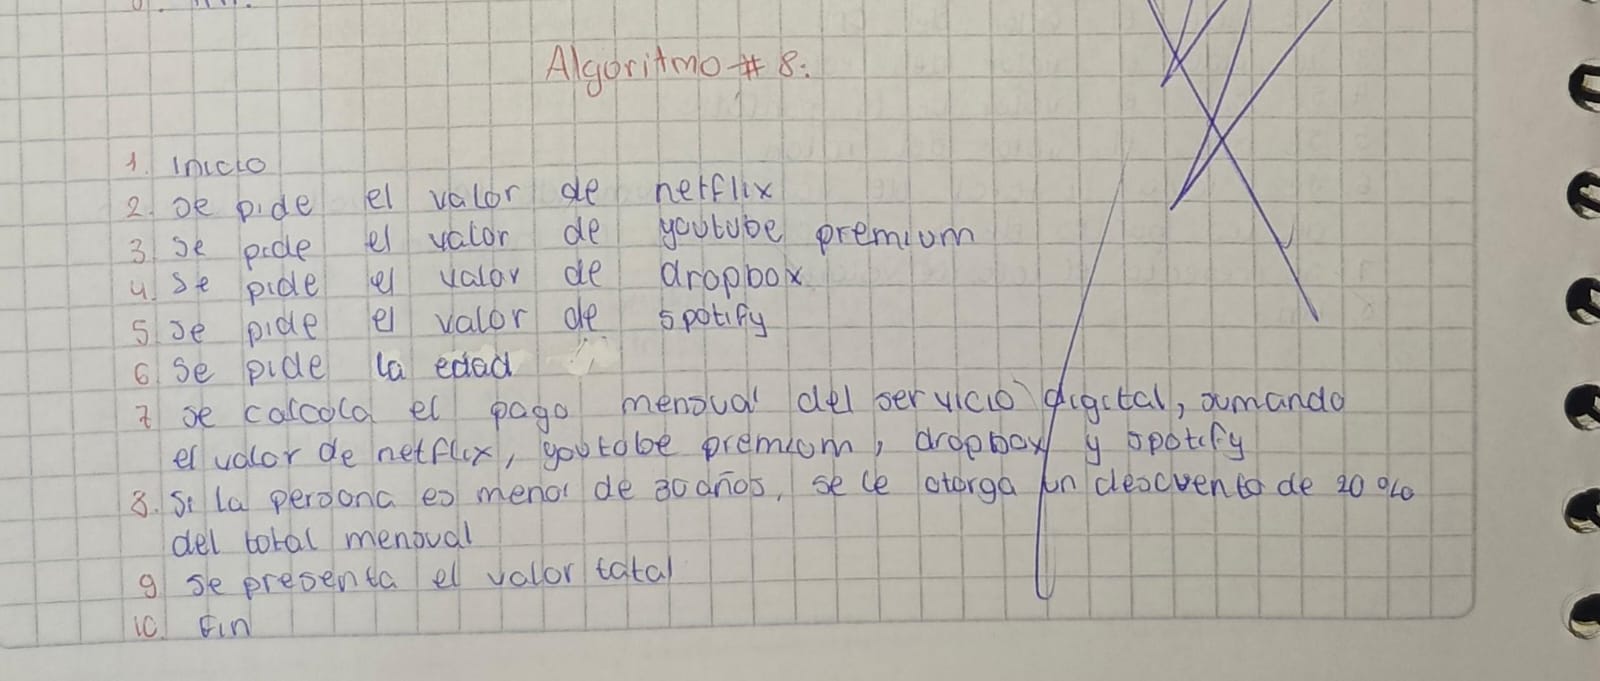 Algoritmo # 8:
1. Inicio
2. se pide el valor de netflix
3. se pide el valor de youtube premium
4. se pide el valor de dropbox
5. se pide el valor de spotify
6. se pide la edad
7. se calcola el pago mensual del servicio digital, sumando
el valor de netflix, youtobe premium, dropbox y spotify
8. Si la persona es menor de 30 años, se le otorga un descuento de 20 %
del total mensual
9 se presenta el valor total
10. Fin